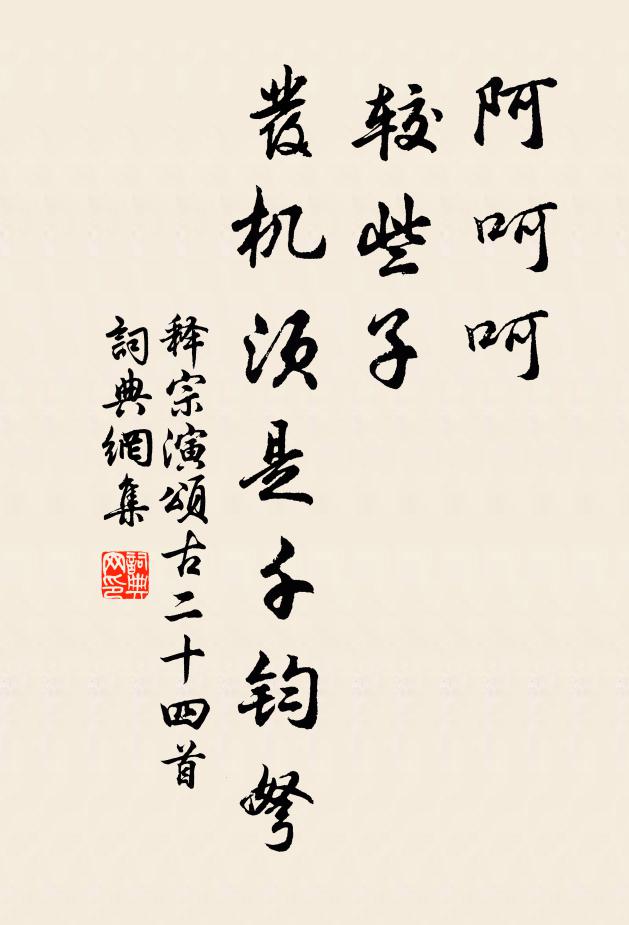 阿呵呵
较些子
發机须是千钧弩
释宗演頌古二十四首
詞典網集
詞典網印